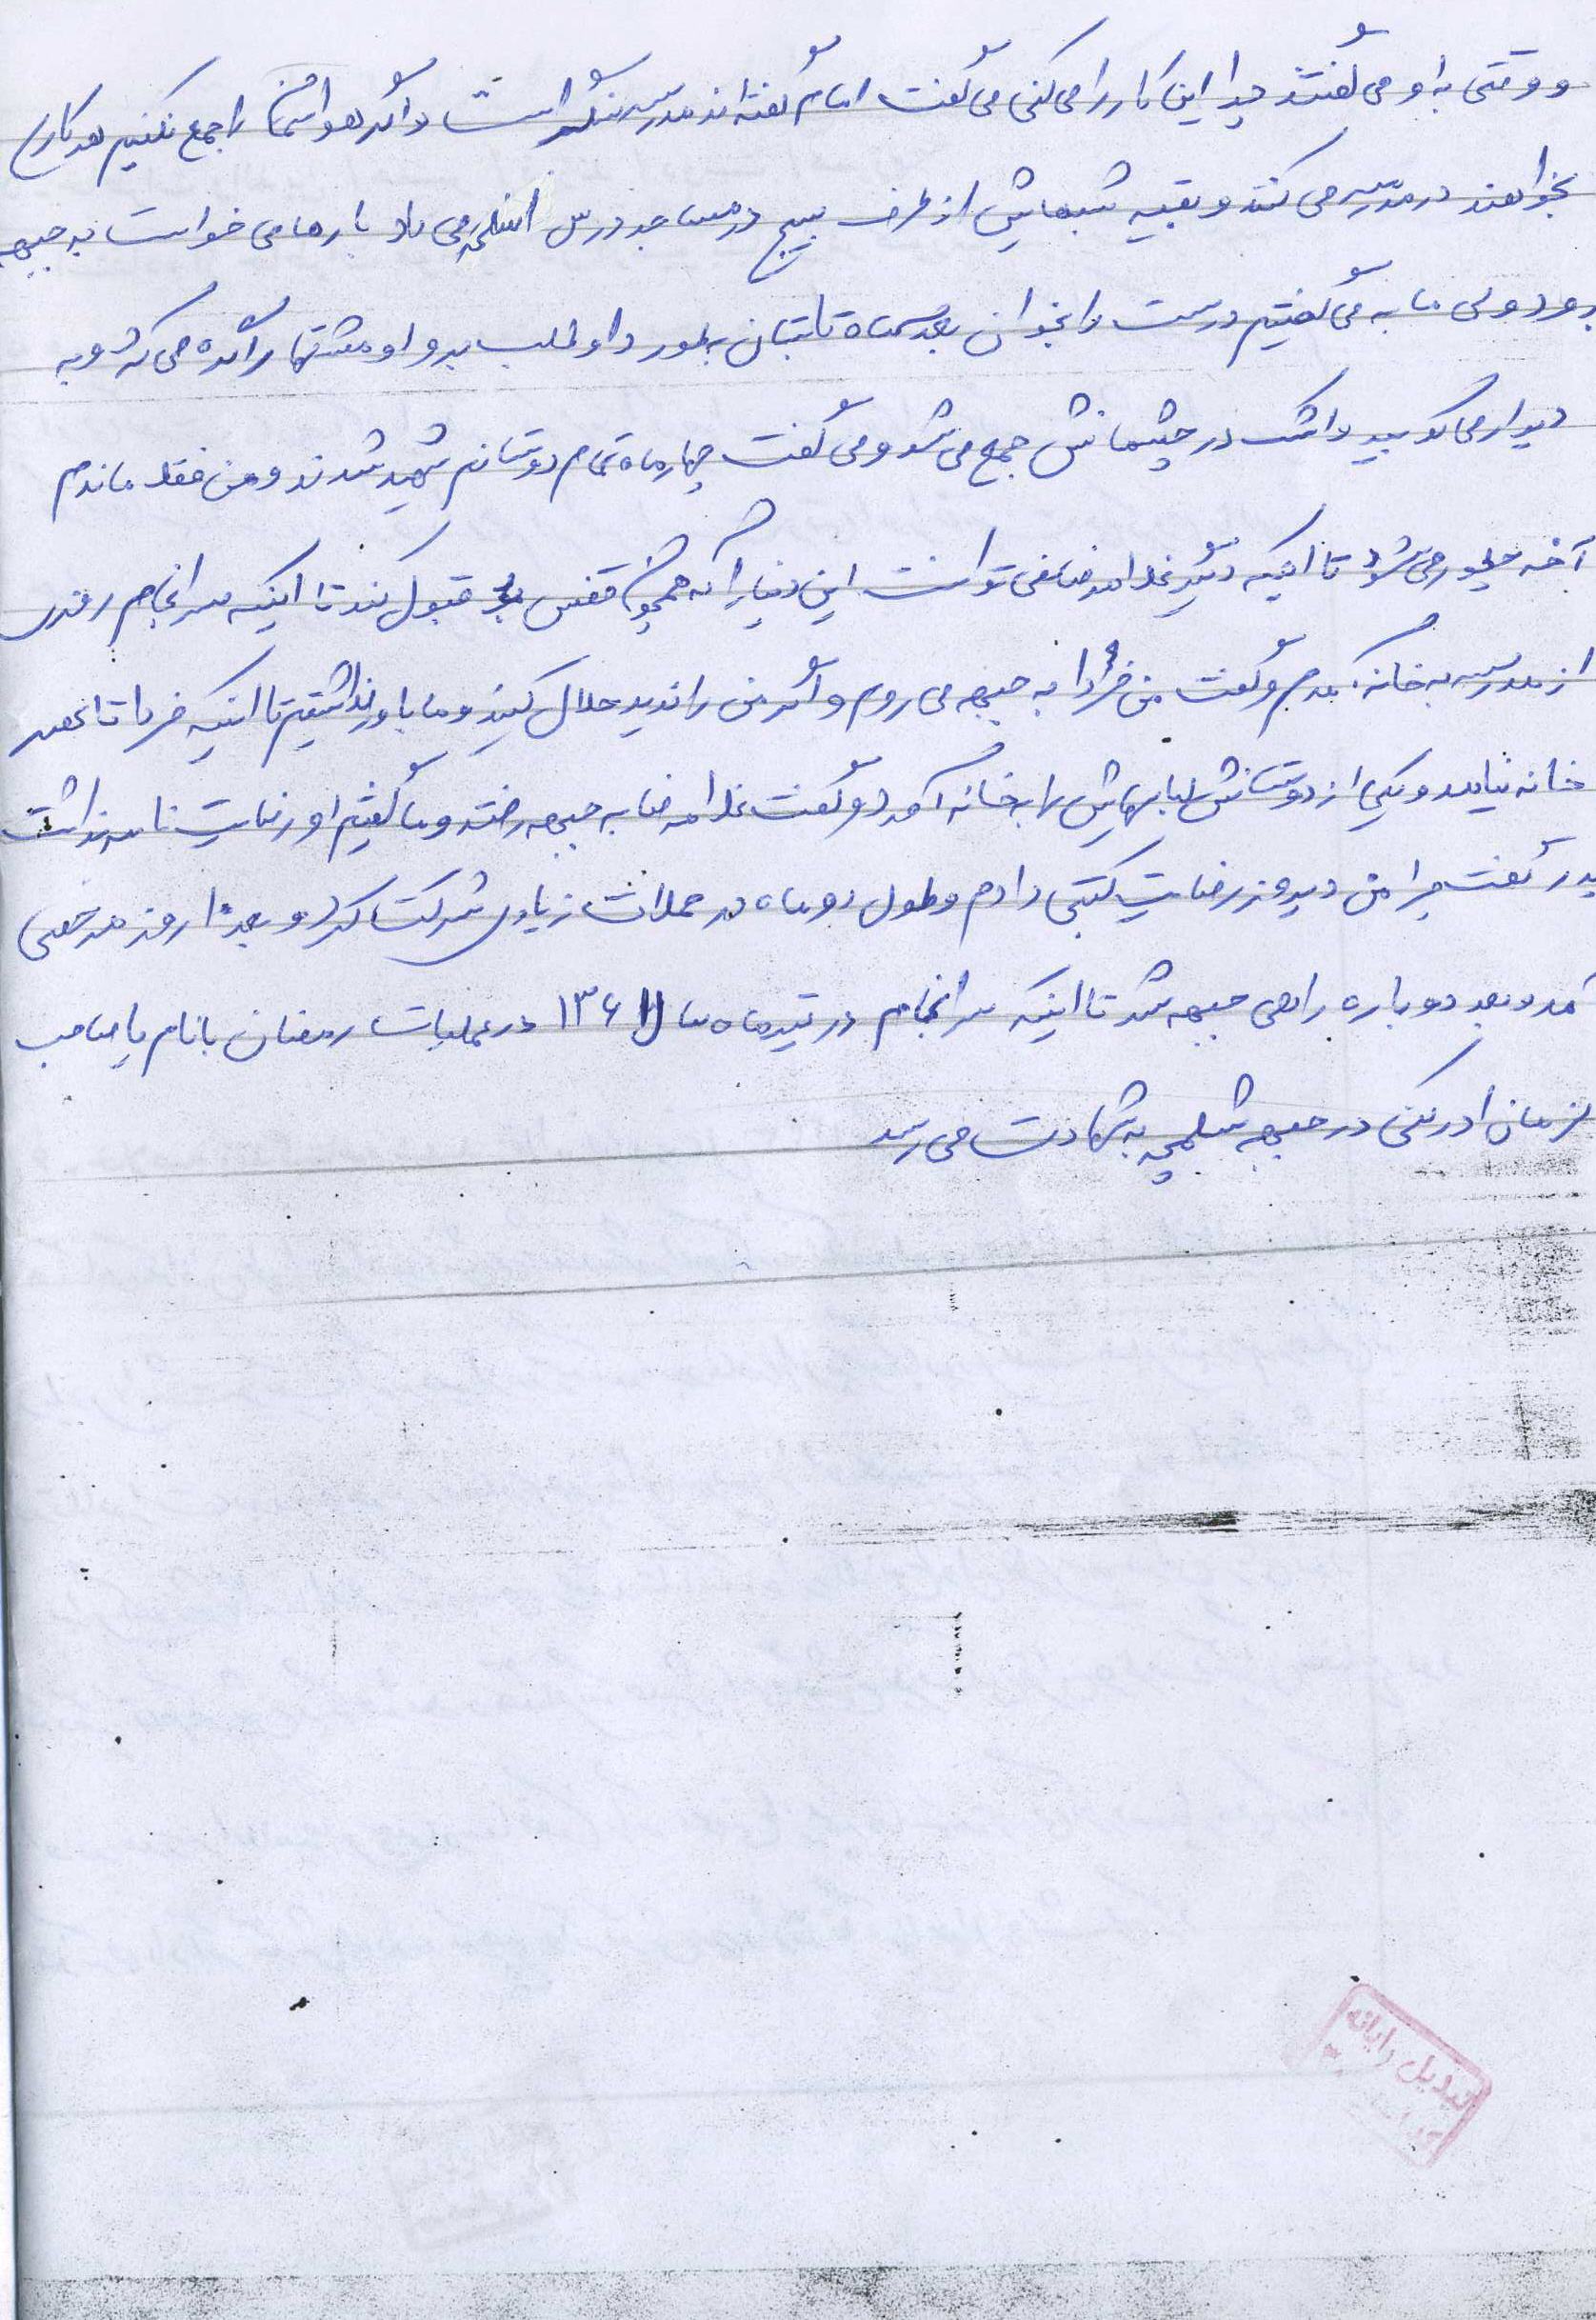 و وقتی به او می گفتند چرا این کار را می کنی می گفت امام گفته اند مدرسه سنگر است و اگر هواسمان را جمع نکنیم هر کاری
بخواهند در مدرسه می کنند و بقیه شبهایش از طرف بسیج در مساجد درس اسلحه می داد بارها می خواست به جبهه
برود ولی ما به می گفتیم درست را بخوان بعد سه ماه تابستان به طور داوطلب برو او مشتها را گره می کرد و به
دیوار می کوبید و اشک در چشمانش جمع می شد و می گفت چهار ماه تمام دوستانم شهید شدند و من فقط ماندم
آخه چطور می شود تا اینکه دیگر غلامرضا نمی توانست این دنیا را که همچون قفس بود قبول کند تا اینکه سرانجام روزی
از مدرسه به خانه آمد و گفت من فردا به جبهه می روم و اگر من را ندید حلال کنید و ما باور نداشتیم تا اینکه فردا تا عصر
خانه نیامد و یکی از دوستانش لباسهایش را به خانه آورد و گفت غلامرضا به جبهه رفته و ما گفتیم او رضایت نامه نداشت
پدر گفت چرا من دیروز رضایت کتبی دادم و طول دو ماه در حملات زیادی شرکت کرد و بعد ۱۰ روز مرخصی
آمد و بعد دوباره راهی جبهه شد تا اینکه سرانجام در تیرماه سال ۱۳۶۱ در عملیات رمضان با نام یا صاحب
الزمان ادرکنی در جبهه شلمچه به شهادت می رسد
تبدیل رایانه